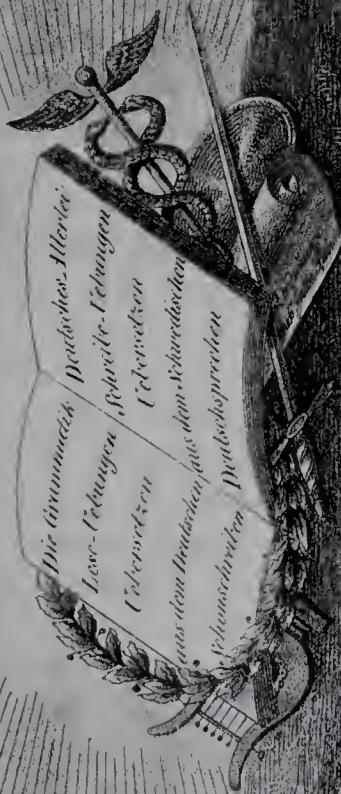 Die Grammatik
Lese-Uebungen
Uebersetzen
aus dem Deutschen
Schönschreiben
Deutsches-Allerlei
Schreibe-Uebungen
Uebersetzen
aus dem Schwedischen
Deutschsprechen